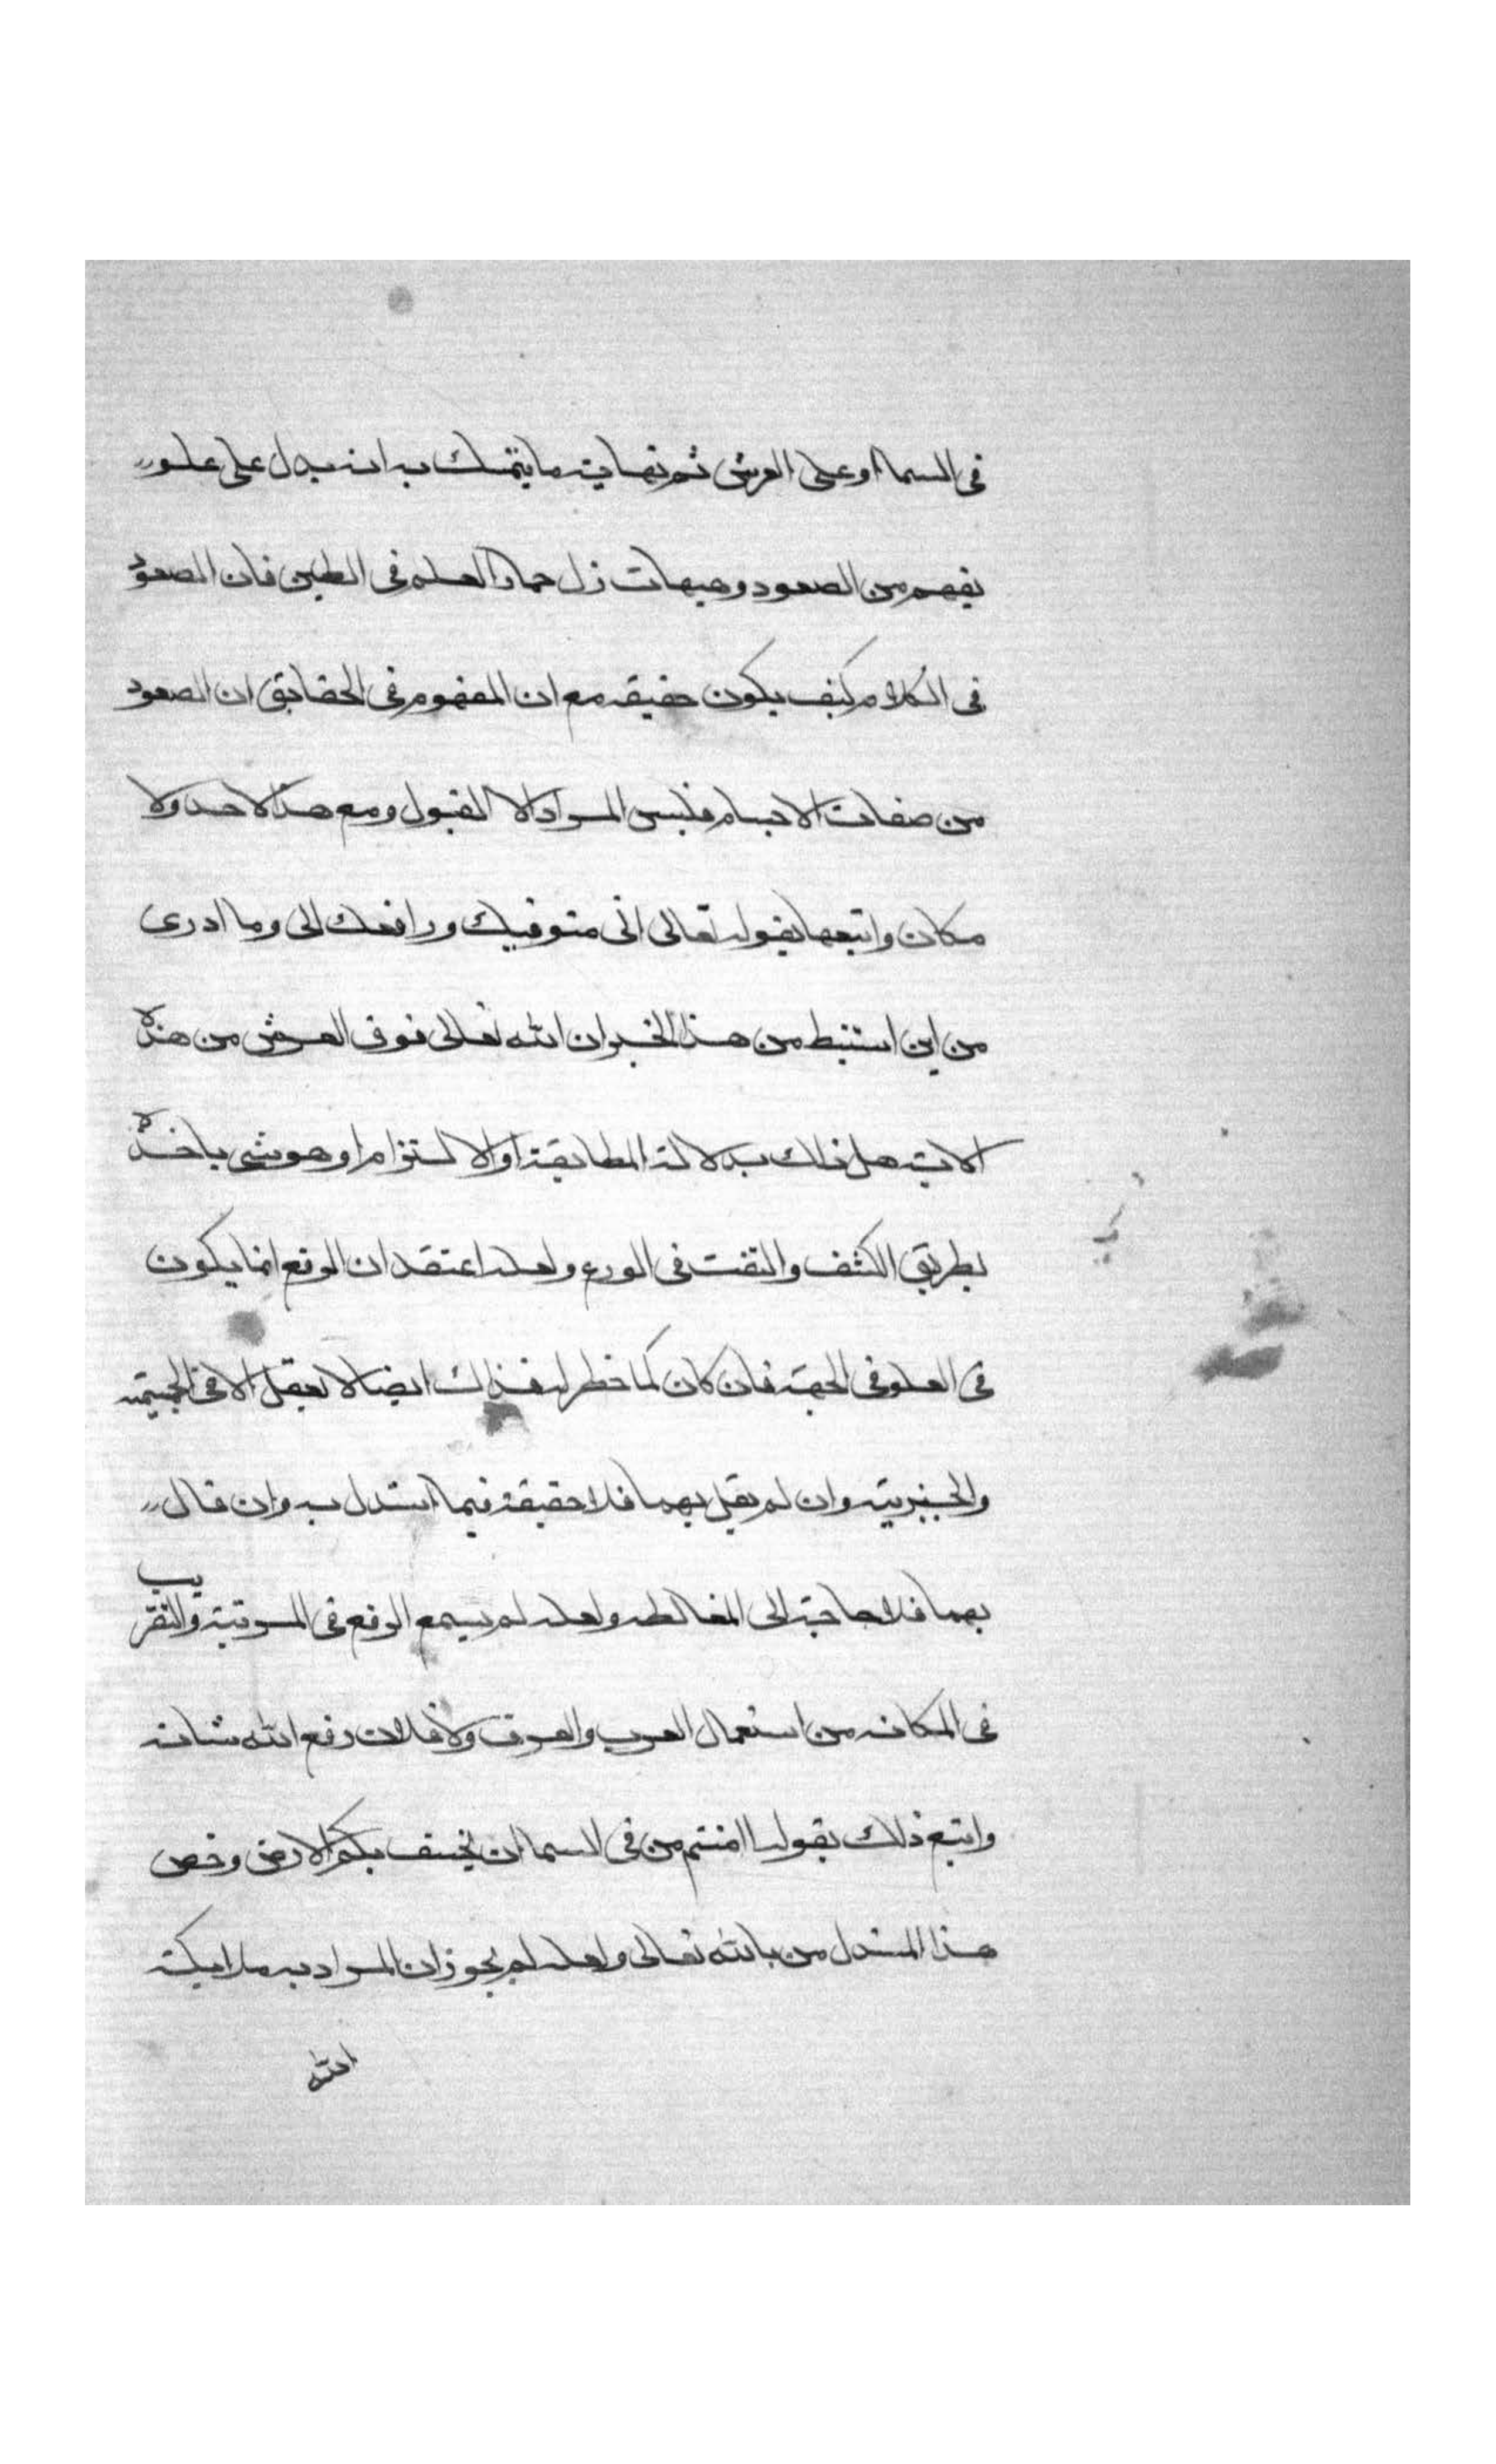 في السما او على العرش ثم نهاية ما يتمسك به انه يدل على علو
يفهم من الصعود وهيهات زل حمار العلم في الطين فان الصعود
في الكلام كيف يكون حقيقه مع ان المفهوم في الحقايق ان الصعود
من صفات الاجسام فليس المراد الا القبول ومع هذا لا حد ولا
مكان واتبعها بقوله تعالى اني متوفيك ورافعك الي وما ادري
من اين استنبط من هذا الخبر ان الله تعالى فوق العرش من هذه
الاية هل ذلك بدلالة المطابقة او الالتزام او هو شي ياخذه
بطريق الكشف والنفث في الورع ولعله اعتقد ان الرفع انما يكون
في العلو في الجهة فان كان كما خطر له فذلك ايضا لا يعقل الا في الجسمية
والحيزية وان لم يقل بهما فلا حقيقة فيما استدل به وان قال
بهما فلا حاجة الى المغالطه ولعله لم يسمع الرفع في المرتبة والتقريب
في المكانه من استعمال العرب والعرف ولا فلان رفع الله شانه
واتبع ذلك بقوله اامنتم من في السما ان يخسف بكم الارض وخص
هذا المستدل من بالله تعالى ولعله لم يجوز ان المراد به ملايكة
الله